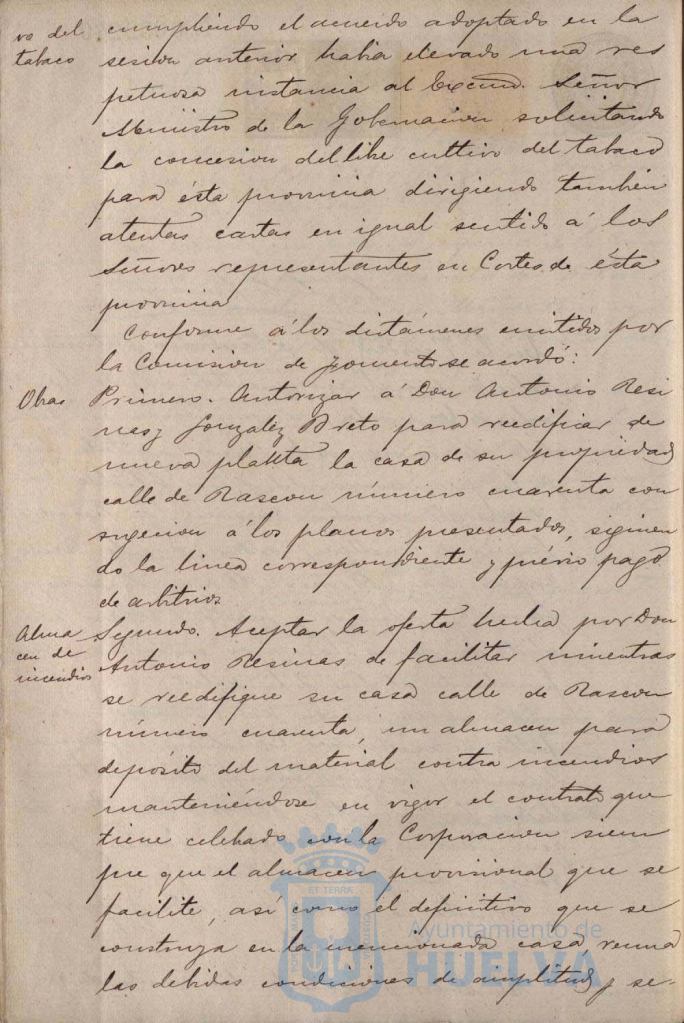 vo del
tabaco
cumpliendo el acuerdo adoptado en la
sesion anterior habia elevado una res
petuosa instancia al Excmo. Señor
Ministro de la Gobernacion solicitando
la concesion del libre cultivo del tabaco
para ésta provincia dirigiendo tambien
atentas cartas en igual sentido á los
Señores representantes en Cortes de ésta
provincia
Conforme á los dictámenes emitidos por
la Comision de Fomento se acordó:
Obras
Primero. Autorizar á Don Antonio Resi
nas y Gonzalez Preto para reedificar de
nueva planta la casa de su propiedad
calle de Rascon número cuarenta con
sugecion á los planos presentados, siguien
do la linea correspondiente y prévio pago
de arbitrios
Alma
cen de
incendios
Segundo. Aceptar la oferta hecha por Don
Antonio Resinas de facilitar mientras
se reedifique su casa calle de Rascon
número cuarenta, un almacen para
depósito del material contra incendios
manteniéndose en vigor el contrato que
tiene celebrado con la Corporacion siem
pre que el almacen provisional que se
facilite, así como el definitivo que se
construya en la mencionada casa, reuna
las debidas condiciones de amplitud y se-
Ayuntamiento de
HUELVA